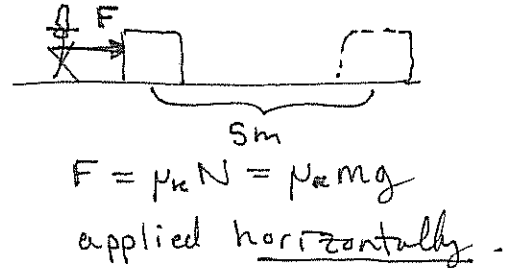 F
5m
F = μₖN = μₖmg
applied horizontally.